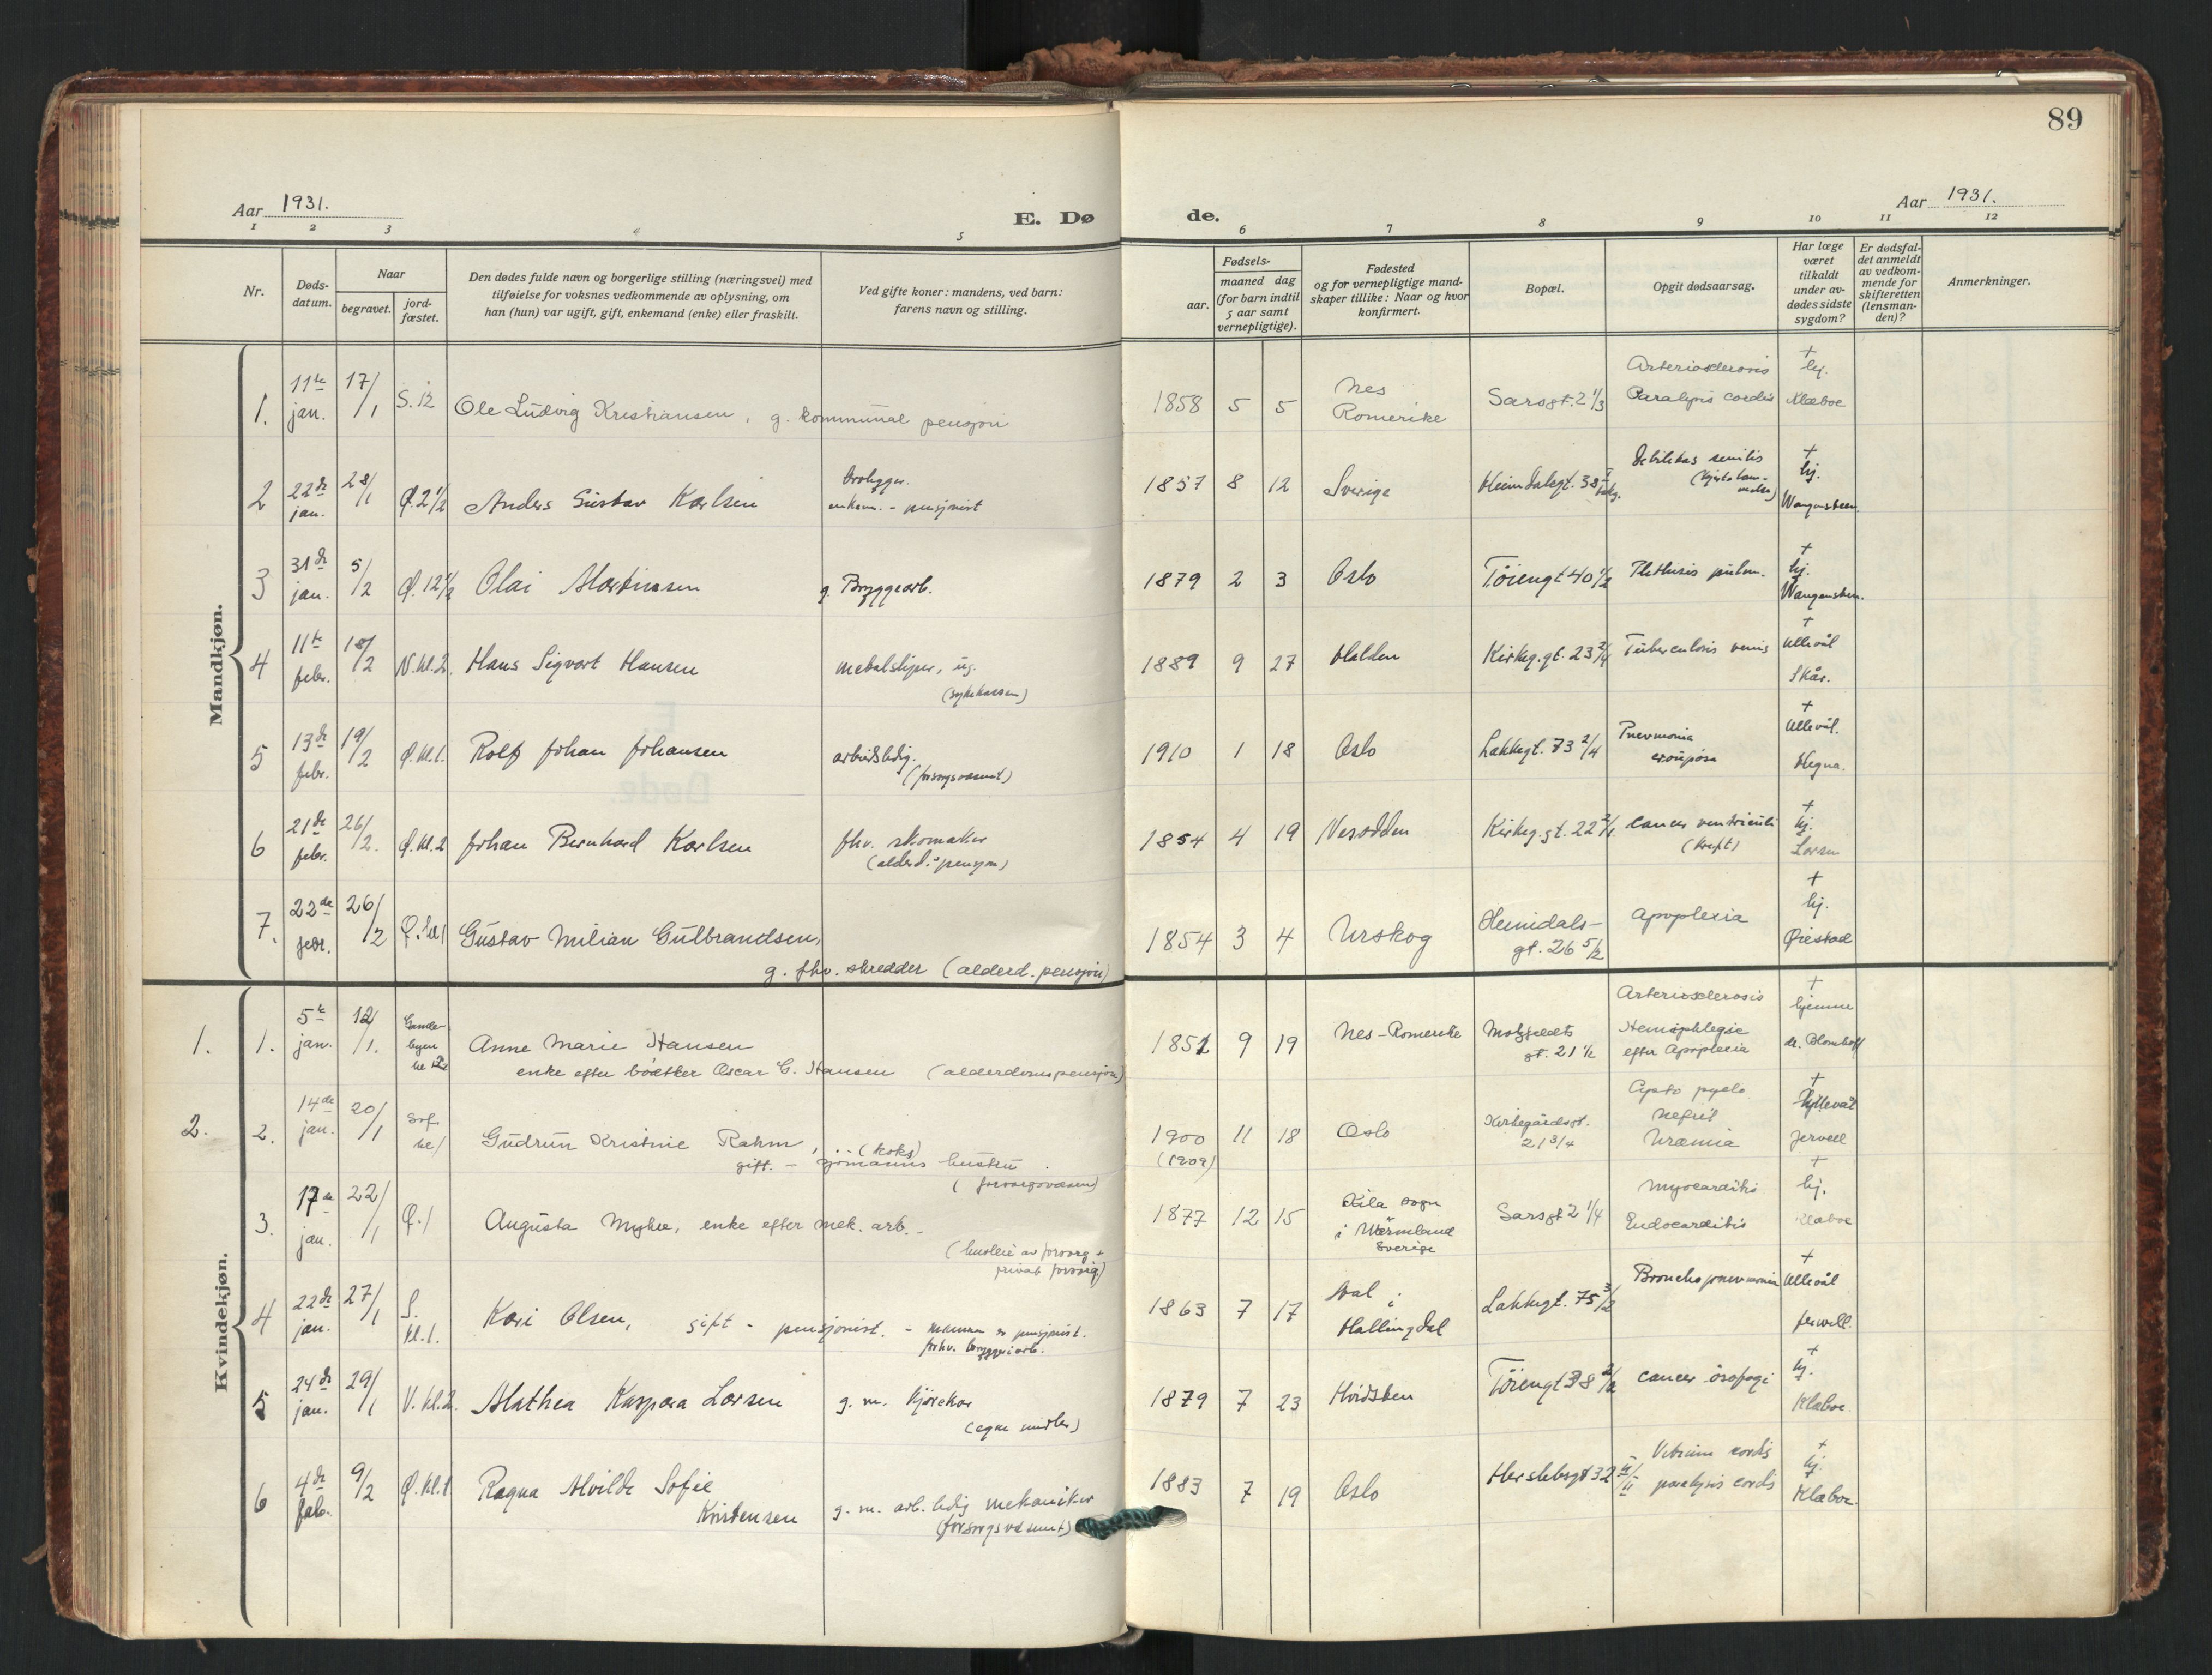 89
Aar 1931.
E. Dø de.
Aar 1931.
1 2 3 4 5 6 7 8 9 10 11 12
Nr.
Døds-
datum.
Naar
begravet.
jord-
fæstet.
Den dødes fulde navn og borgerlige stilling (næringsvei) med
tilføielse for voksnes vedkommende av oplysning, om
han (hun) var ugift, gift, enkemand (enke) eller fraskilt.
Ved gifte koner: mandens, ved barn:
farens navn og stilling.
Fødsels-
aar.
maaned dag
(for barn indtil
5 aar samt
vernepligtige).
Fødested
og for vernepligtige mand-
skaper tillike: Naar og hvor
konfirmert.
Bopæl.
Opgit dødsaarsag.
Har læge
været
tilkaldt
under av-
dødes sidste
sygdom?
Er dødsfal-
det anmeldt
av vedkom-
mende for
skifteretten
(lensman-
den)?
Anmerkninger.
Mandkjøn.
1. 11te jan. 17/1 S. 12 Ole Ludvig Kristiansen, g. kommunal pensjon
1858 5 5 Nes Romerike Sarsgt. 2 1/3 Arteriosclerosis Paralysis cordis + hj. Klæboe
2 22de jan. 28/1 Ø. 2 1/2 Anders Gustav Karlsen
brolegger. enkem. - pensjonist
1857 8 12 Sverige Heimdalsgt. 38 Debilitas senilis + hj. Wangensteen
3 31de jan. 5/2 Olai Martinsen g. Bryggearb.
1879 2 3 Oslo Tøiengt 40 1/2 Phthisis pulm. + hj. Wangensteen.
4 11te febr. 18/2 N. kl. 2. Hans Sigvart Hansen metalsliper, ug.
(sykekassen)
1889 9 27 Halden Kirkeg.gt. 23 2/4 Tuberculosis + Ullevål Skår.
5 13de febr. 19/2 Ø. kl. 1. Rolf Johan Johansen arbeidsledig.
(forsorgsvesenet)
1910 1 18 Oslo Lakkegt. 73 2/4 Pnevmonia crouposa + Ullevål. Hegna.
6 21de febr. 26/2. Ø. kl. 2 Johan Bernhard Karlsen fhv. skomaker
(alderd.-pensjon)
1854 4 19 Nesodden Kirkeg.gt. 22 Cancer ventriculi (kreft) + hj. Larsen
7. 22de febr. 26/2 Gustav Milian Gulbrandsen,
g. fhv. skredder (alderd. pensjon)
1854 3 4 Urskog Heimdals-
gt. 26 5/2 Apoplexia + hj. Ørestad
Kvindekjøn.
1. 1. 5te jan. 12/1. Gamle-
byen
Anne Marie Hansen
enke efter bødker Oscar C. Hansen (alderdomspensjon)
1851 9 19 Nes-Romerike Motzfeldts
gt. 21 1/2 Arteriosclerosis
Hemiphlegie
efter Apoplexia + hjemme dr. Blomhoff
2. 2. 14de jan. 20/1 Sof. Gudrun Kristine Rahm, (koks)
gift. - sjømanns hustru
(forsorgsvesen)
1900 (1909) 11 18 Oslo Kirkegårdsgt.
21 3/4 Cysto pyelo
nefrit
Uræmia + Ullevål Jervell
3. 17de jan. 22/1 Ø. 1 Augusta Myhre, enke efter mek. arb. -
(husleie av forsorg +
privat forsorg)
1877 12 15 Kila sogn
i Wermland
Sverige Sarsgt 2 1/4 Myocarditis
Endocarditis + hj. Klæboe
4 22de jan. 27/1 S. kl. 1. Kari Olsen, gift - pensjonist. - mannen er pensjonist.
forhv. bryggeriarb.
1863 7 17 Aal i
Hallingdal Lakkegt. 75 3/2 Bronchopnevmonia + Ullevål Jervell.
5 24de jan. 29/1 V. kl. 2. Mathea Kaspara Larsen g. m. kjørekar
(egne midler)
1879 7 23 Hvidsten Tøiengt 38 cancer øsofagi + hj. Klæboe.
6 4de feb. 9/2 Ø. kl. 1 Ragna Alvilde Sofie
Kristensen g. m. arb. ledig mekaniker
(forsorgsvesenet)
1883 7 19 Oslo Herslebsgt 32 Vitium cordis
paralysis cordis + hj. Klæboe.